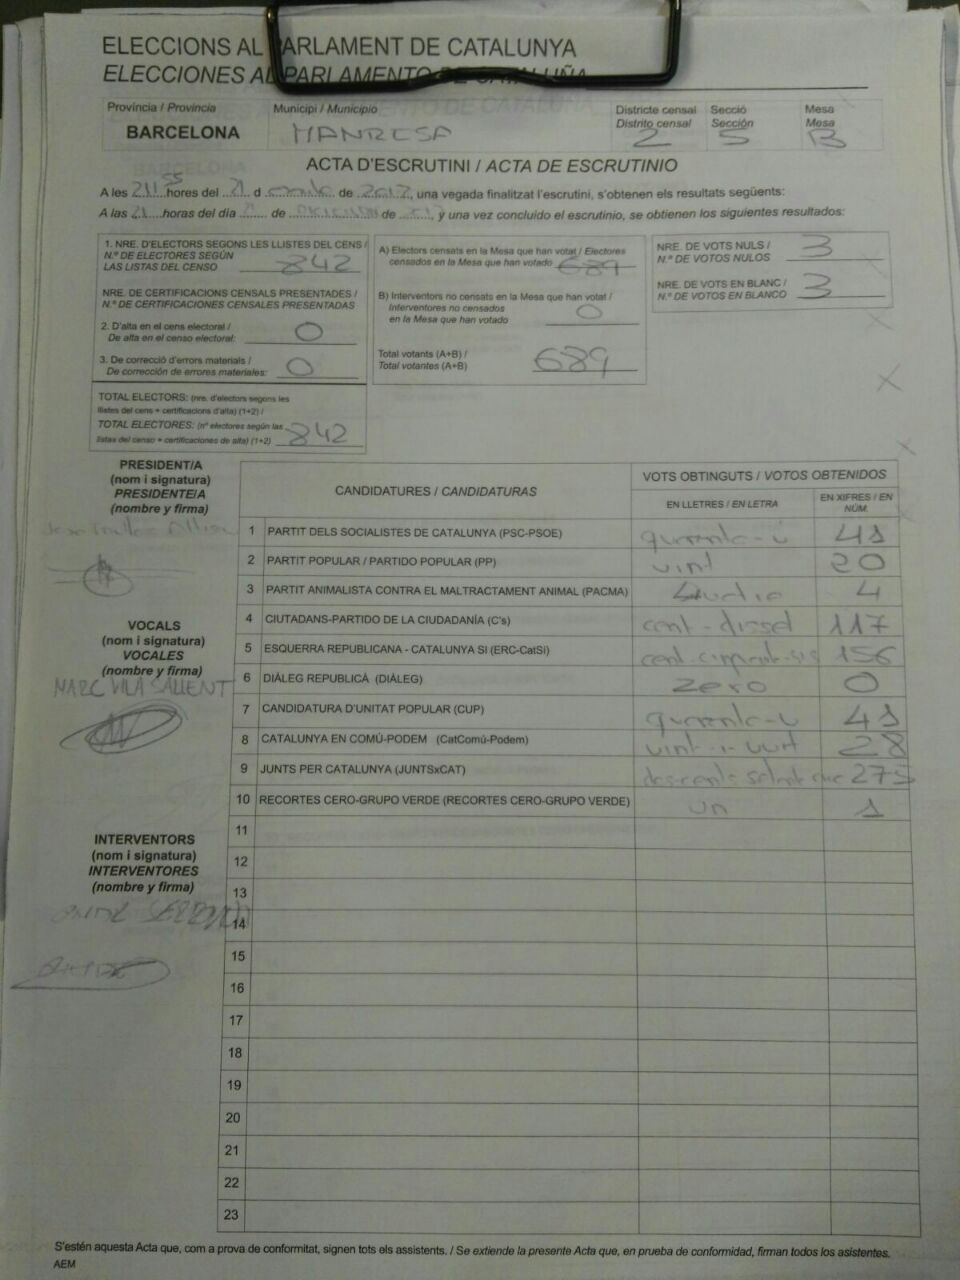 ELECCIONS AL PARLAMENT DE CATALUNYA
ELECCIONES AL PARLAMENTO DE CATALUÑA
Província / Provincia
BARCELONA
Municipi / Municipio
MANRESA
Districte censal
Distrito censal
2
Secció
Sección
5
Mesa
Mesa
B
ACTA D'ESCRUTINI / ACTA DE ESCRUTINIO
A les 21:55 hores del 21 d de 2017, una vegada finalitzat l'escrutini, s'obtenen els resultats següents:
A las 21 horas del día de de y una vez concluido el escrutinio, se obtienen los siguientes resultados:
1. NRE. D'ELECTORS SEGONS LES LLISTES DEL CENS /
N.º DE ELECTORES SEGÚN
LAS LISTAS DEL CENSO 842
NRE. DE CERTIFICACIONS CENSALS PRESENTADES /
N.º DE CERTIFICACIONES CENSALES PRESENTADAS
2. D'alta en el cens electoral /
De alta en el censo electoral: 0
3. De correcció d'errors materials /
De corrección de errores materiales: 0
TOTAL ELECTORS: (nre. d'electors segons les
llistes del cens + certificacions d'alta) (1+2) /
TOTAL ELECTORES: (nº electores según las
listas del censo + certificaciones de alta) (1+2) 842
A) Electors censats en la Mesa que han votat / Electores
censados en la Mesa que han votado 689
B) Interventors no censats en la Mesa que han votat /
Interventores no censados
en la Mesa que han votado 0
Total votants (A+B) /
Total votantes (A+B) 689
NRE. DE VOTS NULS /
N.º DE VOTOS NULOS 3
NRE. DE VOTS EN BLANC /
N.º DE VOTOS EN BLANCO 3
PRESIDENT/A
(nom i signatura)
PRESIDENTE/A
(nombre y firma)
VOCALS
(nom i signatura)
VOCALES
(nombre y firma)
MARC VILA SALLENT
INTERVENTORS
(nom i signatura)
INTERVENTORES
(nombre y firma)
CANDIDATURES / CANDIDATURAS
VOTS OBTINGUTS / VOTOS OBTENIDOS
EN LLETRES / EN LETRA
EN XIFRES / EN NÚM.
1 PARTIT DELS SOCIALISTES DE CATALUNYA (PSC-PSOE) quaranta-u 41
2 PARTIT POPULAR / PARTIDO POPULAR (PP) vint 20
3 PARTIT ANIMALISTA CONTRA EL MALTRACTAMENT ANIMAL (PACMA) 4
4 CIUTADANS-PARTIDO DE LA CIUDADANÍA (C's) cent-disset 117
5 ESQUERRA REPUBLICANA - CATALUNYA SI (ERC-CatSí) cent-cinquant-sis 156
6 DIÀLEG REPUBLICÀ (DIÀLEG) zero 0
7 CANDIDATURA D'UNITAT POPULAR (CUP) quaranta-u 41
8 CATALUNYA EN COMÚ-PODEM (CatComú-Podem) vint-i-vuit 28
9 JUNTS PER CATALUNYA (JUNTSxCAT) 275
10 RECORTES CERO-GRUPO VERDE (RECORTES CERO-GRUPO VERDE) un 1
11
12
13
14
15
16
17
18
19
20
21
22
23
S'estén aquesta Acta que, com a prova de conformitat, signen tots els assistents. / Se extiende la presente Acta que, en prueba de conformidad, firman todos los asistentes.
AEM